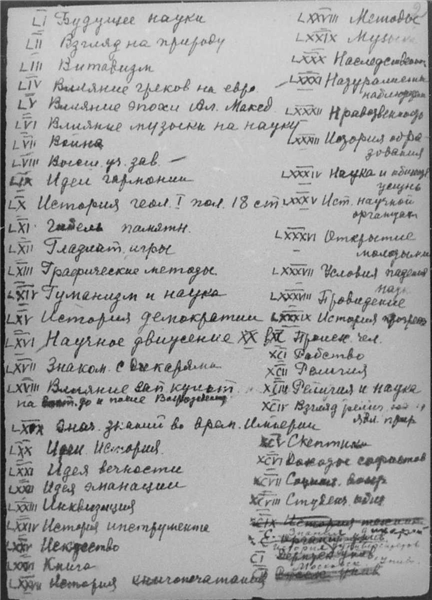 LI Будущее науки
LII Взгляд на природу
LIII Витализм
LIV Влияние греков на евро. —
LV Влияние эпохи Ал. Макед
LVI Влияние музыки на науку
LVII Война
LVIII Высш. уч. зав. —
LIX Идеи гармонии
LX История геол. I пол. 18 ст
LXI Гибель памятн.
LXII Гладиат. игры
LXIII Графические методы
LXIV Гуманизм и наука
LXV История демократии
LXVI Научное движение XX
LXVII Знаком. с дикарями
LXVIII Влияние зап культ.
на вост. до и после Возрожден.
LXIX знаний во врем. Империи
LXX Идеи История.
LXXI Идея вечности
LXXII Идея эманации
LXXIII Инквизиция
LXXIV История инструмента
LXXV Искусство
LXXVI Книга
LXXVII История книгопечатания
LXXVIII Методы
LXXIX Музыка
LXXX Наследственность
LXXXI Натуралисты
наблюдат
LXXXII Нравозвенов
LXXXIII История обра-
зования
LXXXIV Наука и общест
LXXXV Ист. научной
организ
LXXXVI Открытие
молодыми
LXXXVII Условия падения
наук
LXXXVIII Провидение
LXXXIX История прогресс
XC Происх. чел.
XCI Рабство
XCII Религия
XCIII Религия и наука
XCIV Взгляд религ.
явл. прир
XCV Скептики
XCVI софистов
XCVII Социал. вопр
XCVIII Студенч. общ
XCIX История техник
C
CI
Московск. унив.